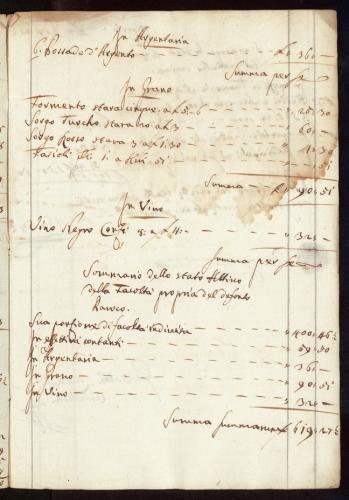 In Argentaria
6. Possade d'Argento — 360 —
Summa per se
In Grano
Formento stara cinque, a £ 5:6 — 26:30
Sorgo Turcho stara 20 a £ 3 — 60:—
Sorgo Rosso stara 3 a £ 1:30 — 4:30
Fasioli 1: a 51 —
Summa — 90:51
In Vino
Vino Negro Conzi 8: a — 320 —
Summa per se
Sommario dello stato Attivo
della Facoltà propria del defonto
Sua porzione di facoltà indivisa — 400:46½
In effettivi contanti — 59:50
In Argentaria — 36 —
In Grano — 90:51
In Vino — 32 —
Summa summarum £ 619:27½